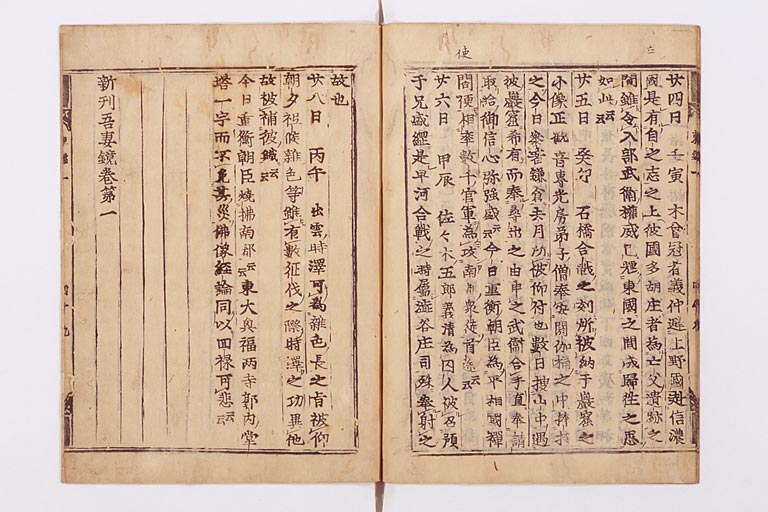 使
廿四日 壬寅 木曾冠者義仲避上野國赴信濃
國是有自之志之上彼國多胡庄者為亡父遺跡之
間雖令入部武衛權威已輝東國之間成歸往之思
如此云云
廿五日 癸卯 石橋合戰之刻所被納于巖窟之
小像正觀音專光房弟子僧奉安閼伽桶之中捧持
之今日參著鎌倉去月所被仰付也數日搜山中遇
彼巖窟希有而奉尋出之由申之武衛合手直奉請
取給御信心弥強盛云云今日重衡朝臣為平相國禪
閤使相率數千官軍為攻南都衆徒首途云云
廿六日 甲辰 佐々木五郎義清為囚人被召預
于兄盛經是早河合戰之時属澁谷庄司殊奉射之
故也
廿八日 丙午 出雲時澤可為雜色長之旨被仰
朝夕祗候雜色等雖有數征伐之際時澤之功異他
故被補彼職云云
今日重衡朝臣燒拂南都云云東大興福兩寺郭内堂
塔一宇而不免其災佛像經論同以回禄可悲云云
新刊吾妻鏡卷第一